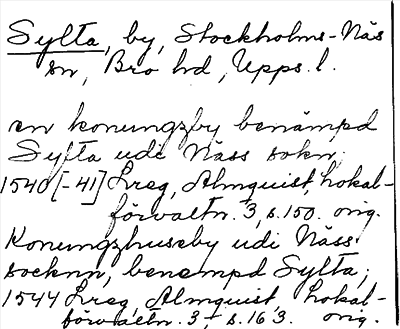 Sylta, by, Stockholms-Näs
sn, Bro hd, Upps. l.
en konungzby benämpd
Sylta udi Näss sokn;
1540[-41] Lreg, Almquist, Lokal-
förvaltn. 3, s. 150. orig.
Konungzhuseby udi Näss
socknn, benempd Sylta;
1544 Lreg, Almquist, Lokal-
förvaltn. 3 s. 163. orig.